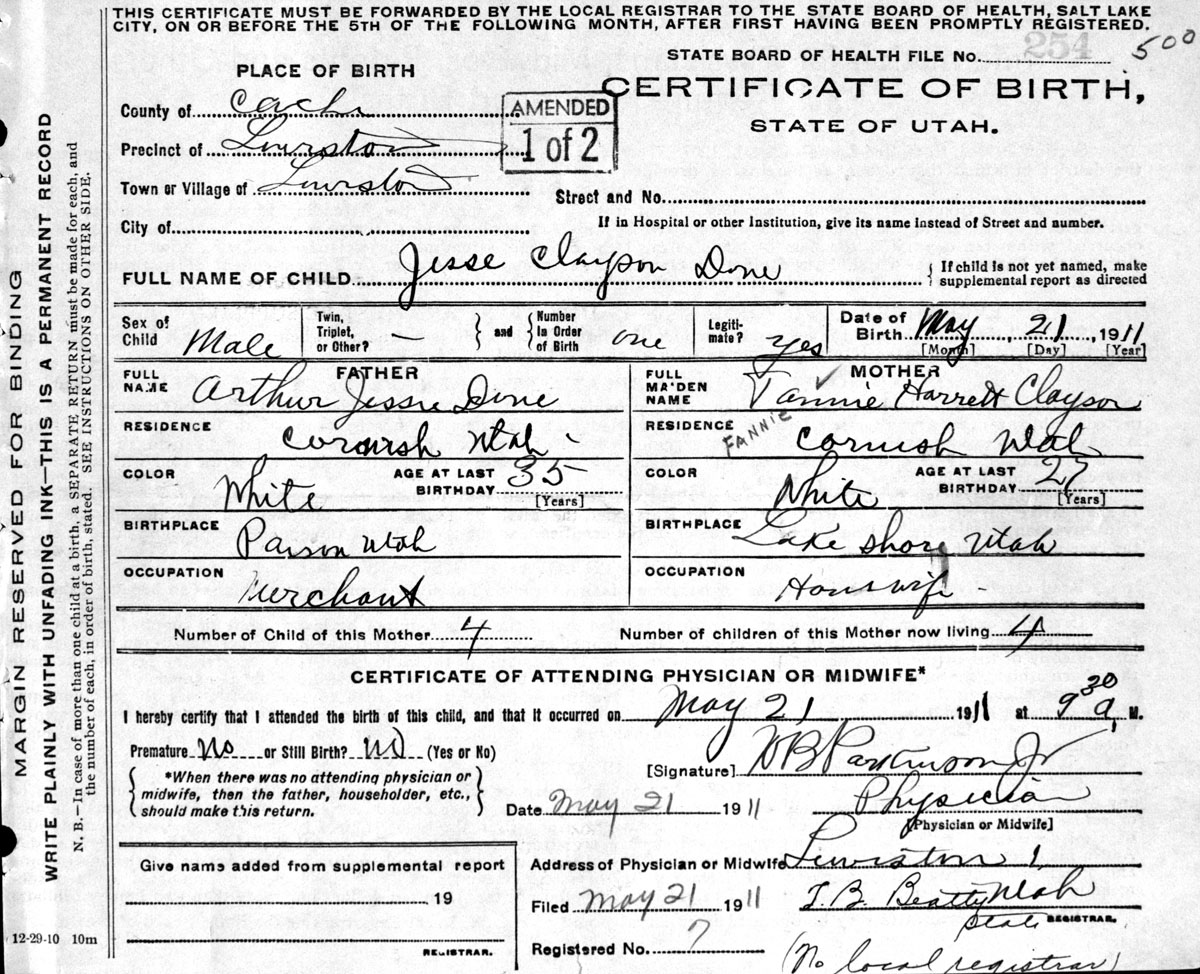 THIS CERTIFICATE MUST BE FORWARDED BY THE LOCAL REGISTRAR TO THE STATE BOARD OF HEALTH, SALT LAKE
CITY, ON OR BEFORE THE 5TH OF THE FOLLOWING MONTH, AFTER FIRST HAVING BEEN PROMPTLY REGISTERED.
STATE BOARD OF HEALTH FILE No. 254 500
PLACE OF BIRTH
CERTIFICATE OF BIRTH,
STATE OF UTAH.
County of Cache
AMENDED
1 of 2
Precinct of Lewiston
Town or Village of Lewiston
Street and No.
City of
If in Hospital or other Institution, give its name instead of Street and number.
FULL NAME OF CHILD Jesse Clayson Done
{ If child is not yet named, make
supplemental report as directed
Sex of Child Male
Twin, Triplet, or Other? —
} and {
Number In Order of Birth one
Legiti- mate? yes
Date of Birth May, 21, 1911
[Month] [Day] [Year]
FATHER
FULL NAME Arthur Jessie Done
MOTHER
FULL MAIDEN NAME Fannie Harrett Clayson
FANNIE
RESIDENCE Cornish Utah
RESIDENCE Cornish Utah
COLOR White
AGE AT LAST BIRTHDAY 35
[Years]
COLOR White
AGE AT LAST BIRTHDAY 27
[Years]
BIRTHPLACE Payson Utah
BIRTHPLACE Lake Shore Utah
OCCUPATION Merchant
OCCUPATION Housewife
Number of Child of this Mother 4
Number of children of this Mother now living 4
CERTIFICATE OF ATTENDING PHYSICIAN OR MIDWIFE*
I hereby certify that I attended the birth of this child, and that it occurred on May 21 1911 at 9 30 a. M.
Premature No or Still Birth? No (Yes or No)
{ *When there was no attending physician or
midwife, then the father, householder, etc.,
should make this return. }
[Signature] W B Parkinson Jr
Date May 21 1911
Physician
[Physician or Midwife]
Give name added from supplemental report
19
REGISTRAR.
Address of Physician or Midwife Lewiston,
Utah
Filed May 21 1911
T.B. Beatty
State REGISTRAR.
Registered No. 7
(No local registrar)
12-29-10 10m
MARGIN RESERVED FOR BINDING
WRITE PLAINLY WITH UNFADING INK—THIS IS A PERMANENT RECORD
N. B.—In case of more than one child at a birth, a SEPARATE RETURN must be made for each, and
the number of each, in order of birth, stated. SEE INSTRUCTIONS ON OTHER SIDE.